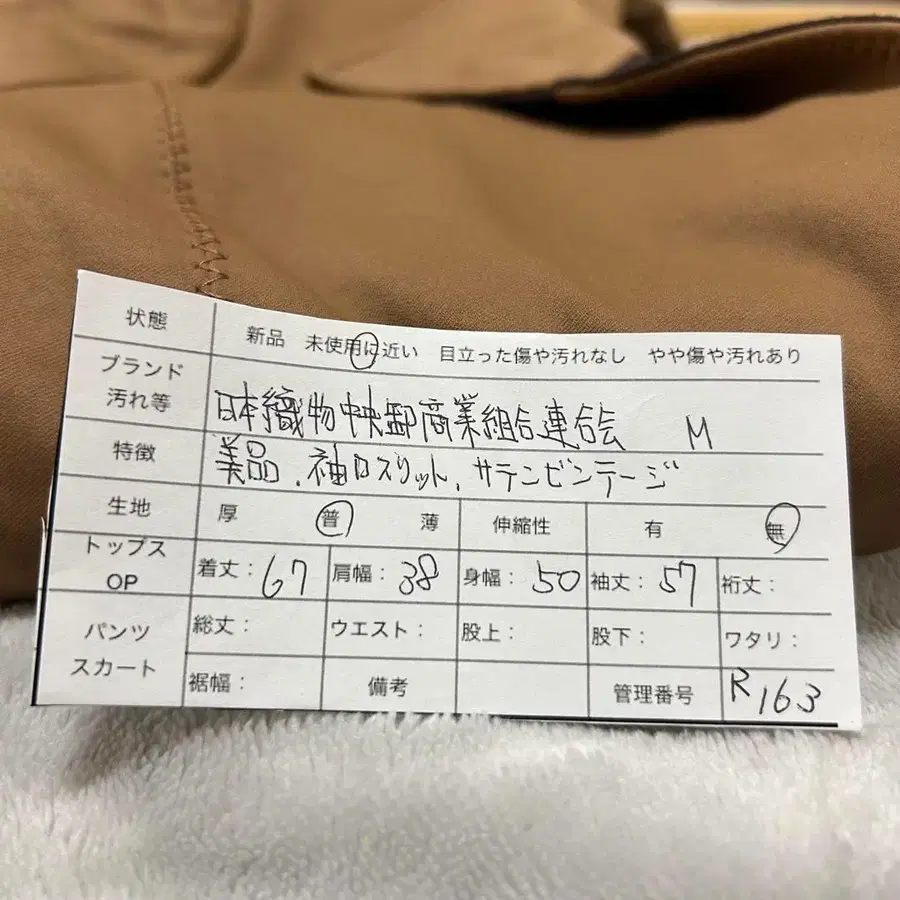 状態 新品 未使用に近い 目立った傷や汚れなし やや傷や汚れあり
ブランド
汚れ等 日本織物中央卸商業組合連合会 M
特徴 美品、袖口スリット、サテンビンテージ
生地 厚 普 薄 伸縮性 有 無
トップス
OP 着丈:67 肩幅:38 身幅:50 袖丈:57 裄丈:
パンツ
スカート 総丈: ウエスト: 股上: 股下: ワタリ:
裾幅: 備考 管理番号 R163